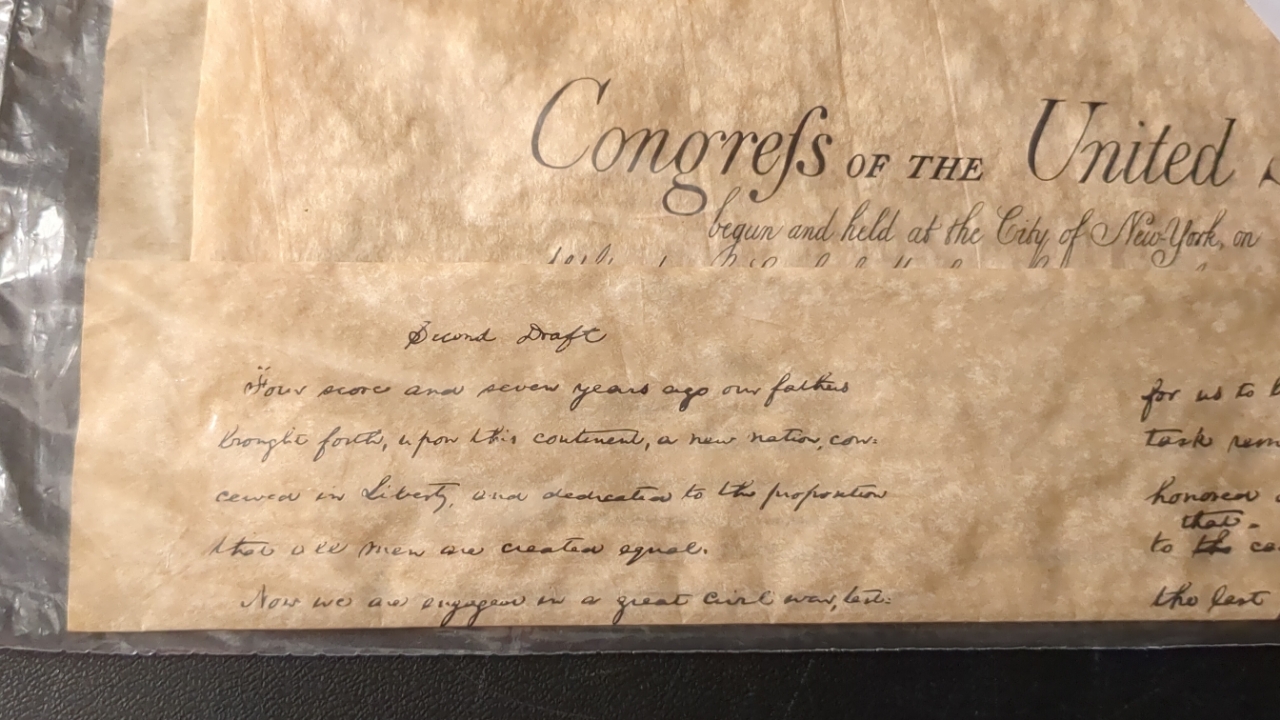 Congreſs OF THE United
begun and held at the City of New-York, on
Second Draft
Four score and seven years ago our fathers
brought forth, upon this continent, a new nation, con:
ceived in Liberty, and dedicated to the proposition
that all men are created equal.
Now we are engaged in a great civil war, test:
for us to
task
honored
that.
to the
the last